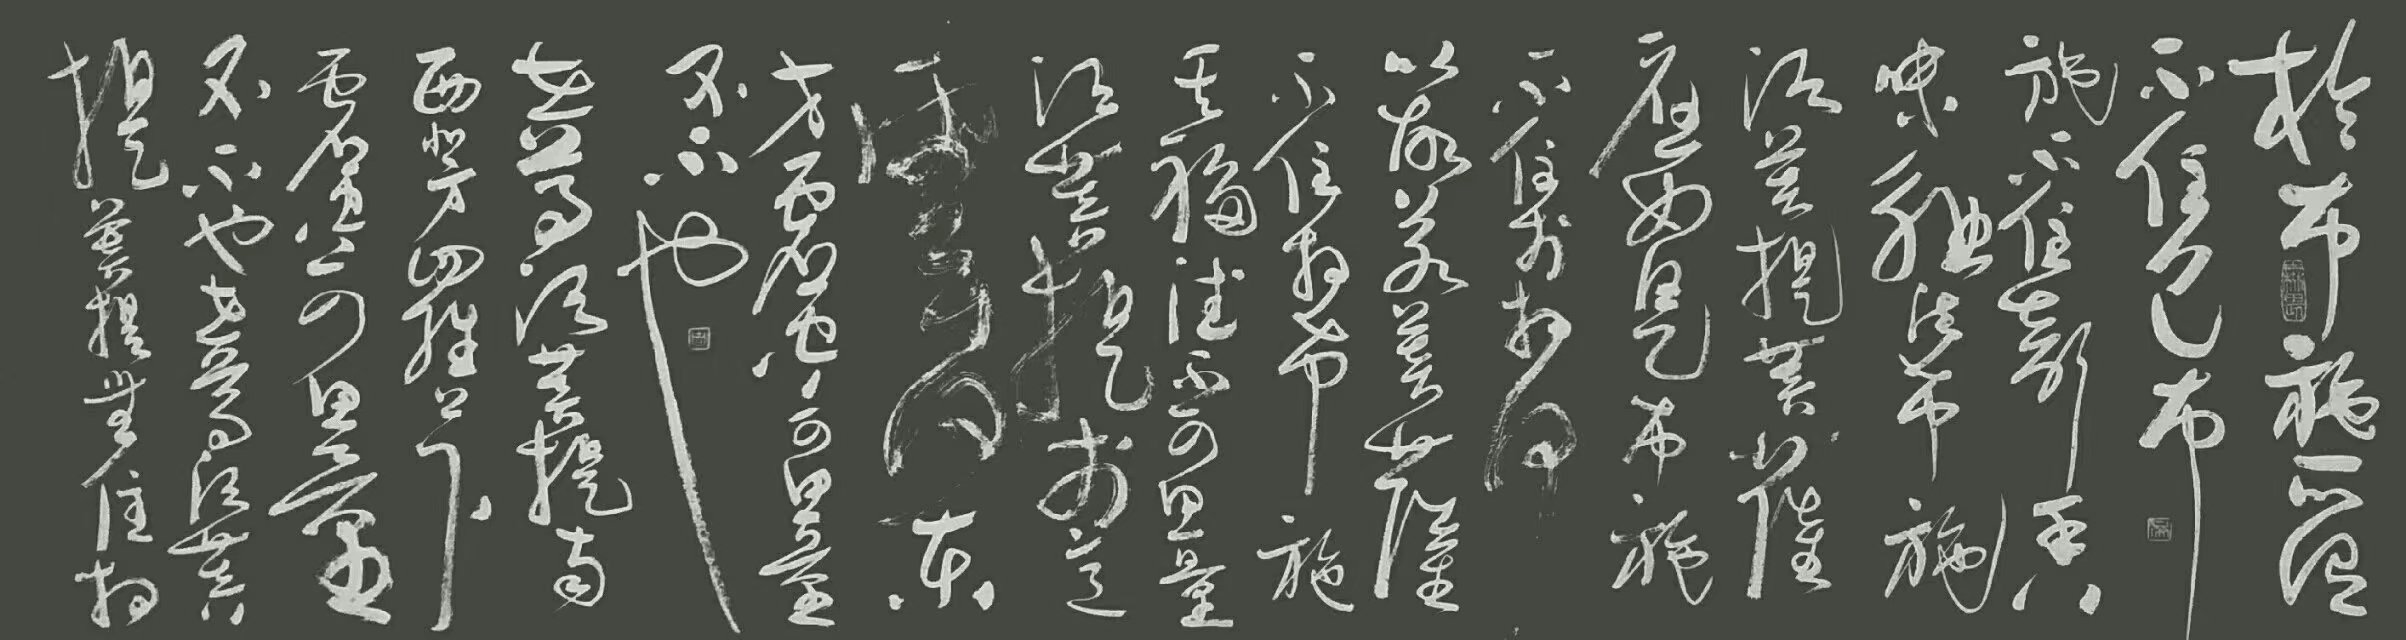 於布施所謂
不住色布
施不住聲香
味觸法布施
須菩提菩薩
應如是布施
不住於相何
以故若菩薩
不住相布施
其福德不可思量
須菩提於意
云何東
方虛空可思量
不不也
世尊須菩提南
西北方四維上下
虛空可思量
不不也世尊須菩
提菩提無住相